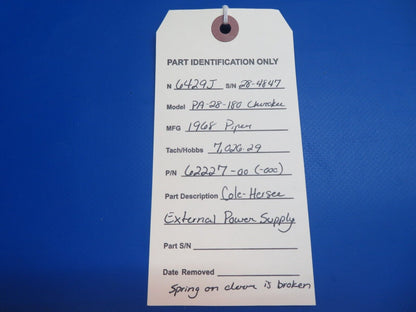 PART IDENTIFICATION ONLY
N 6429J S/N 28-4847
Model PA-28-180 Cherokee
MFG 1968 Piper
Tach/Hobbs 7,026.29
P/N 62227-00 (-000)
Part Description Cole-Hersee
External Power Supply
Part S/N
Date Removed
Spring on door is broken